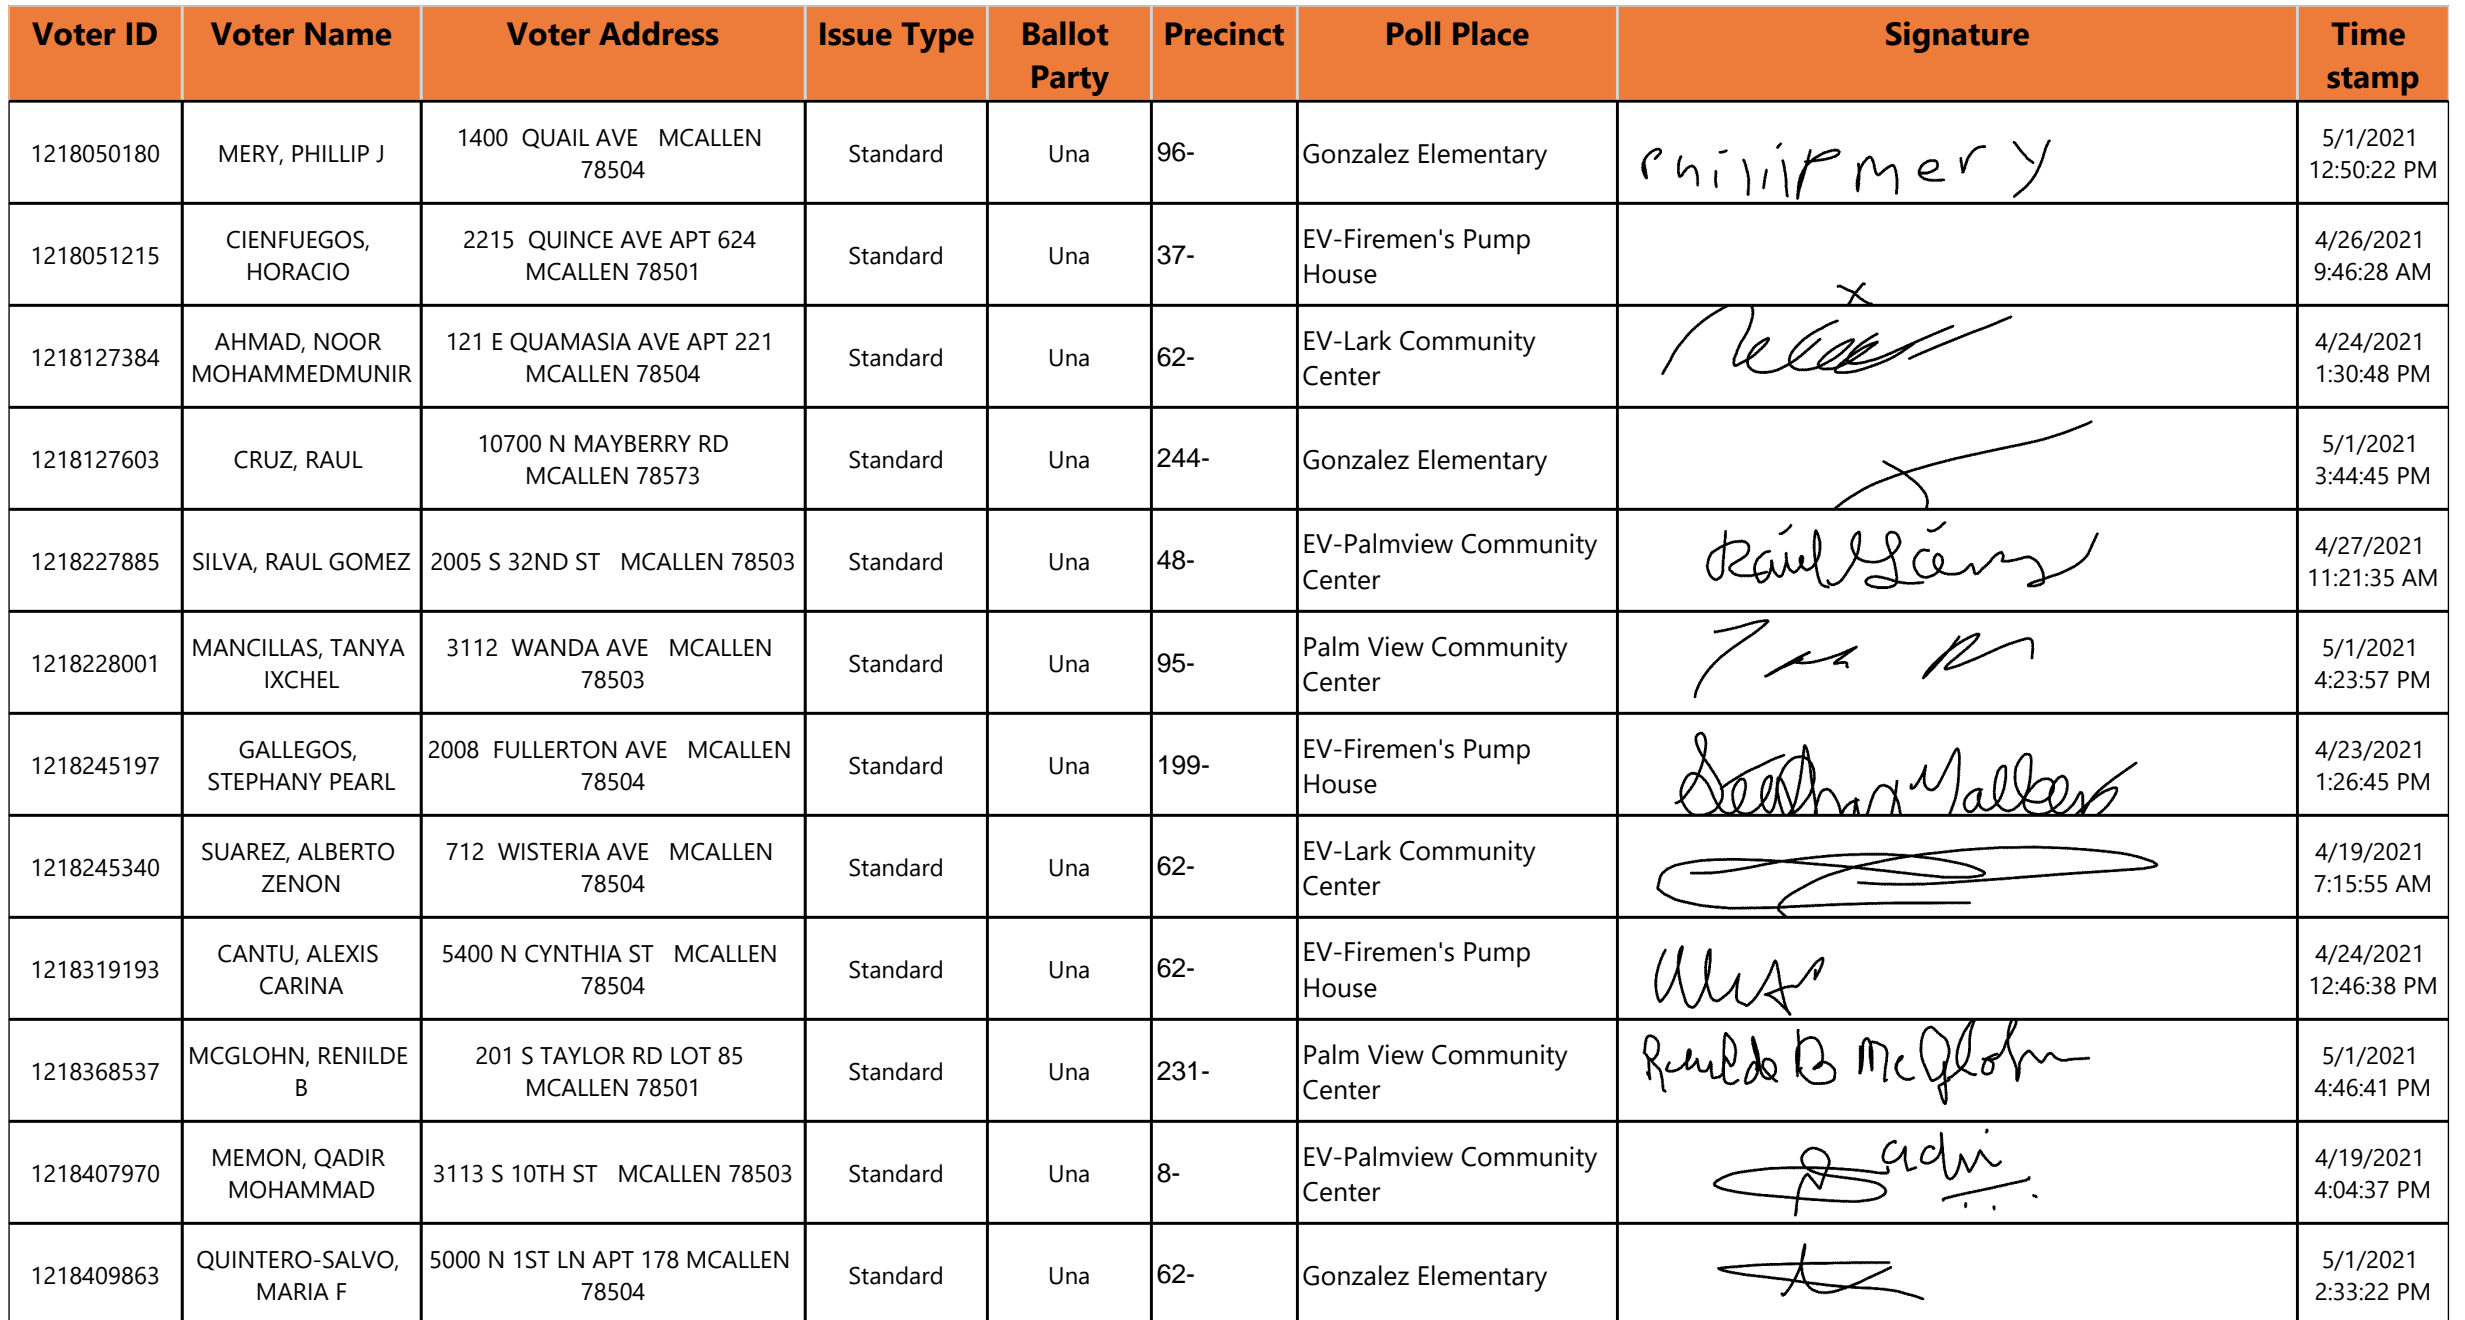 Voter ID Voter Name Voter Address Issue Type Ballot Party Precinct Poll Place Signature Time stamp
1218050180 MERY, PHILLIP J 1400 QUAIL AVE MCALLEN 78504 Standard Una 96- Gonzalez Elementary Phillip mery 5/1/2021 12:50:22 PM
1218051215 CIENFUEGOS, HORACIO 2215 QUINCE AVE APT 624 MCALLEN 78501 Standard Una 37- EV-Firemen's Pump House x 4/26/2021 9:46:28 AM
1218127384 AHMAD, NOOR MOHAMMEDMUNIR 121 E QUAMASIA AVE APT 221 MCALLEN 78504 Standard Una 62- EV-Lark Community Center 4/24/2021 1:30:48 PM
1218127603 CRUZ, RAUL 10700 N MAYBERRY RD MCALLEN 78573 Standard Una 244- Gonzalez Elementary 5/1/2021 3:44:45 PM
1218227885 SILVA, RAUL GOMEZ 2005 S 32ND ST MCALLEN 78503 Standard Una 48- EV-Palmview Community Center Raúl 4/27/2021 11:21:35 AM
1218228001 MANCILLAS, TANYA IXCHEL 3112 WANDA AVE MCALLEN 78503 Standard Una 95- Palm View Community Center 5/1/2021 4:23:57 PM
1218245197 GALLEGOS, STEPHANY PEARL 2008 FULLERTON AVE MCALLEN 78504 Standard Una 199- EV-Firemen's Pump House 4/23/2021 1:26:45 PM
1218245340 SUAREZ, ALBERTO ZENON 712 WISTERIA AVE MCALLEN 78504 Standard Una 62- EV-Lark Community Center 4/19/2021 7:15:55 AM
1218319193 CANTU, ALEXIS CARINA 5400 N CYNTHIA ST MCALLEN 78504 Standard Una 62- EV-Firemen's Pump House 4/24/2021 12:46:38 PM
1218368537 MCGLOHN, RENILDE B 201 S TAYLOR RD LOT 85 MCALLEN 78501 Standard Una 231- Palm View Community Center Renilde B McGlohn 5/1/2021 4:46:41 PM
1218407970 MEMON, QADIR MOHAMMAD 3113 S 10TH ST MCALLEN 78503 Standard Una 8- EV-Palmview Community Center 4/19/2021 4:04:37 PM
1218409863 QUINTERO-SALVO, MARIA F 5000 N 1ST LN APT 178 MCALLEN 78504 Standard Una 62- Gonzalez Elementary 5/1/2021 2:33:22 PM